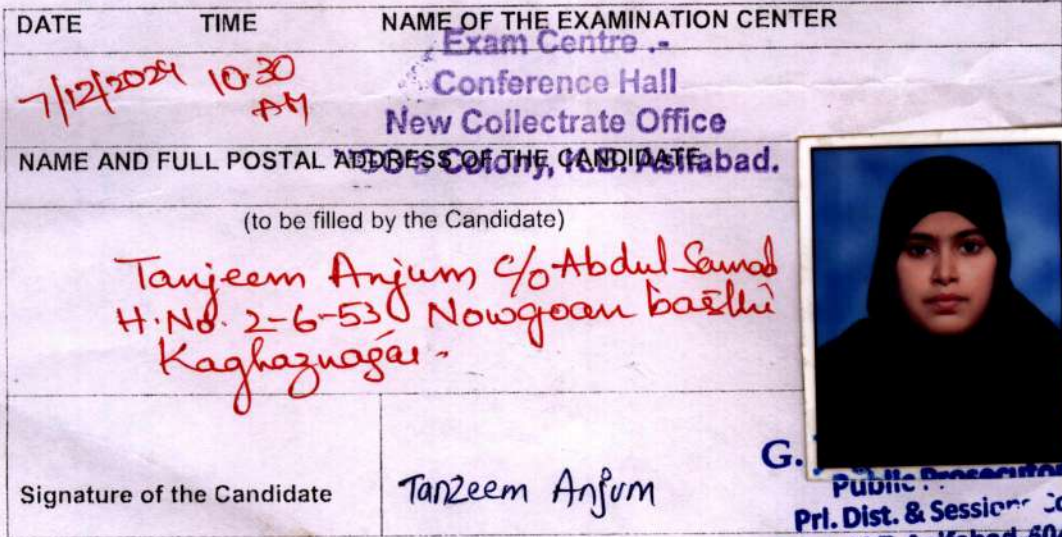 DATE TIME NAME OF THE EXAMINATION CENTER
Exam Centre :-
7/12/2024 10.30 AM
Conference Hall
New Collectrate Office
NAME AND FULL POSTAL ADDRESS OF THE CANDIDATE
Colony, K.B. Asifabad.
(to be filled by the Candidate)
Tanjeem Anjum C/o Abdul Samad
H.No. 2-6-530 Nowgoan basthi
Kaghaznagar.
Signature of the Candidate
Tanzeem Anjum
G.
Public Prosecutor
Prl. Dist. & Sessions